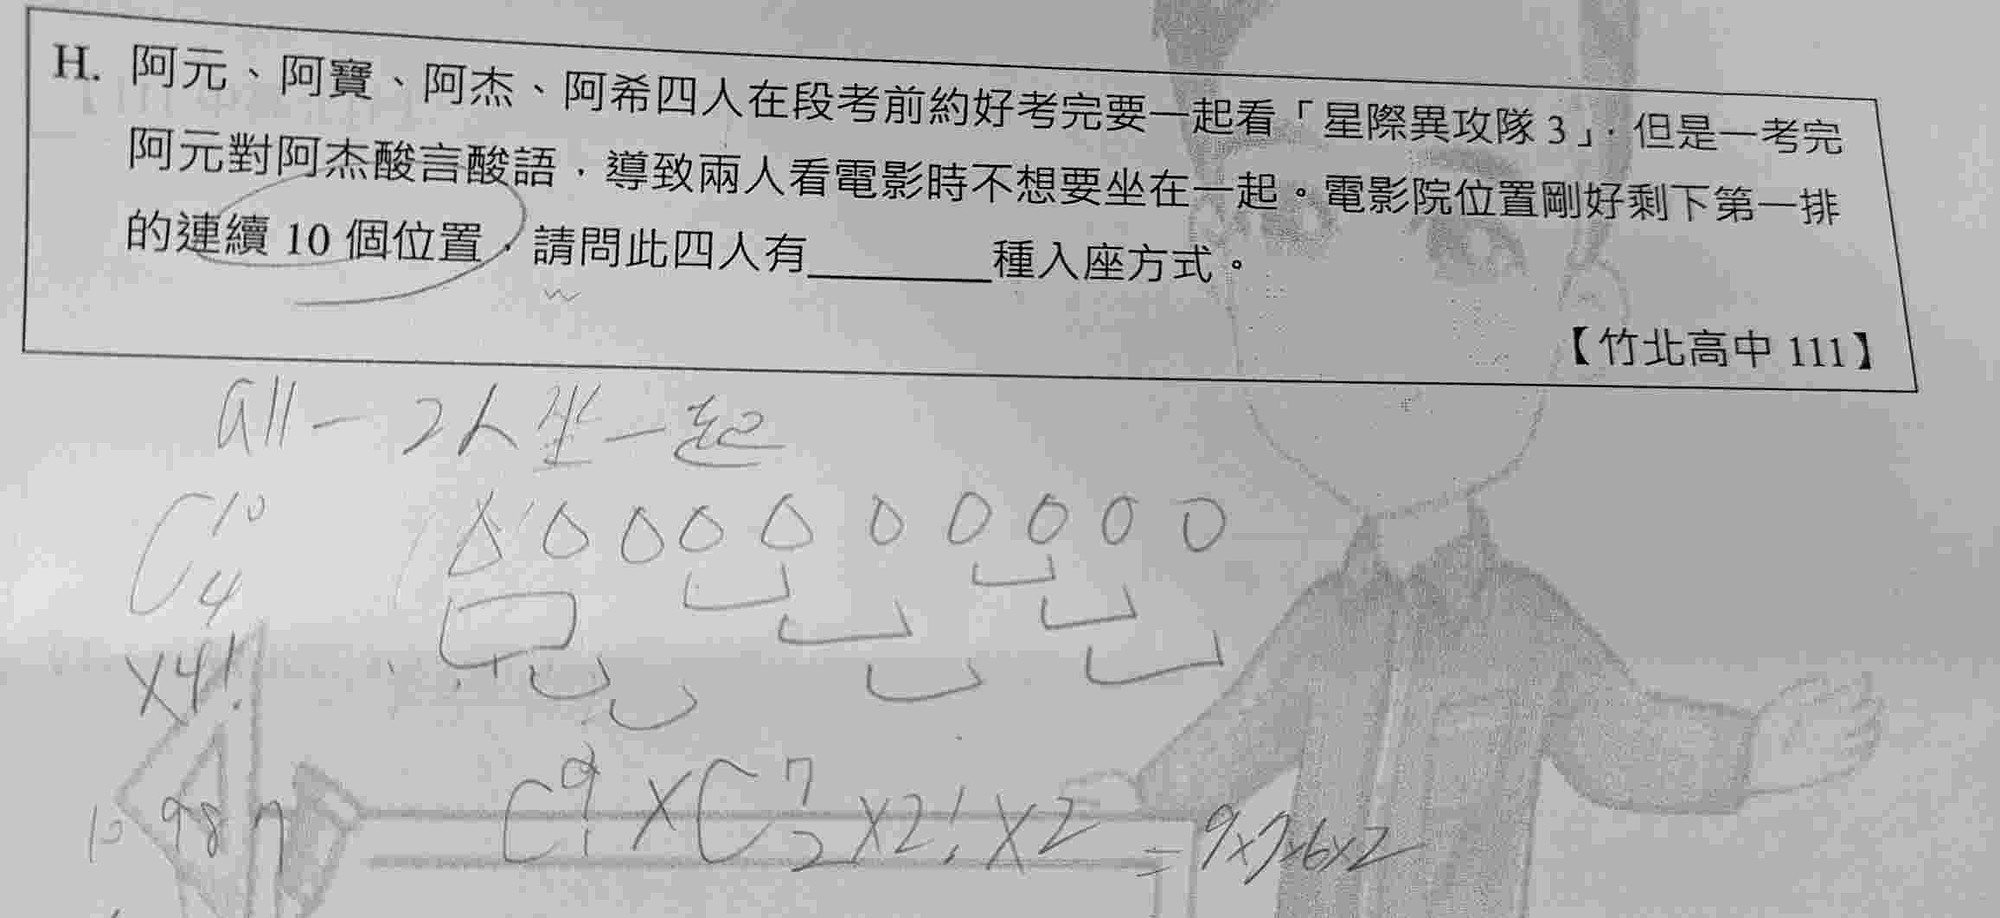 H. 阿元、阿寶、阿杰、阿希四人在段考前約好考完要一起看「星際異攻隊 3」，但是一考完
阿元對阿杰酸言酸語，導致兩人看電影時不想要坐在一起。電影院位置剛好剩下第一排
的連續 10 個位置，請問此四人有________種入座方式。
【竹北高中 111】
all - 2人坐一起
C 10 4
×4!
10 9 8 7
C 9 1 × C 7 2 × 2! × 2 = 9×7×6×2